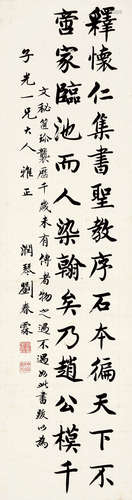 釋懷仁集書聖教序石本徧天下不
啻家臨池而人染翰矣乃趙公模千
文秘笈珍襲歷千歲未有傳者物之遇不遇如此書後以為
子光一兄大人雅正
潤琴劉春霖